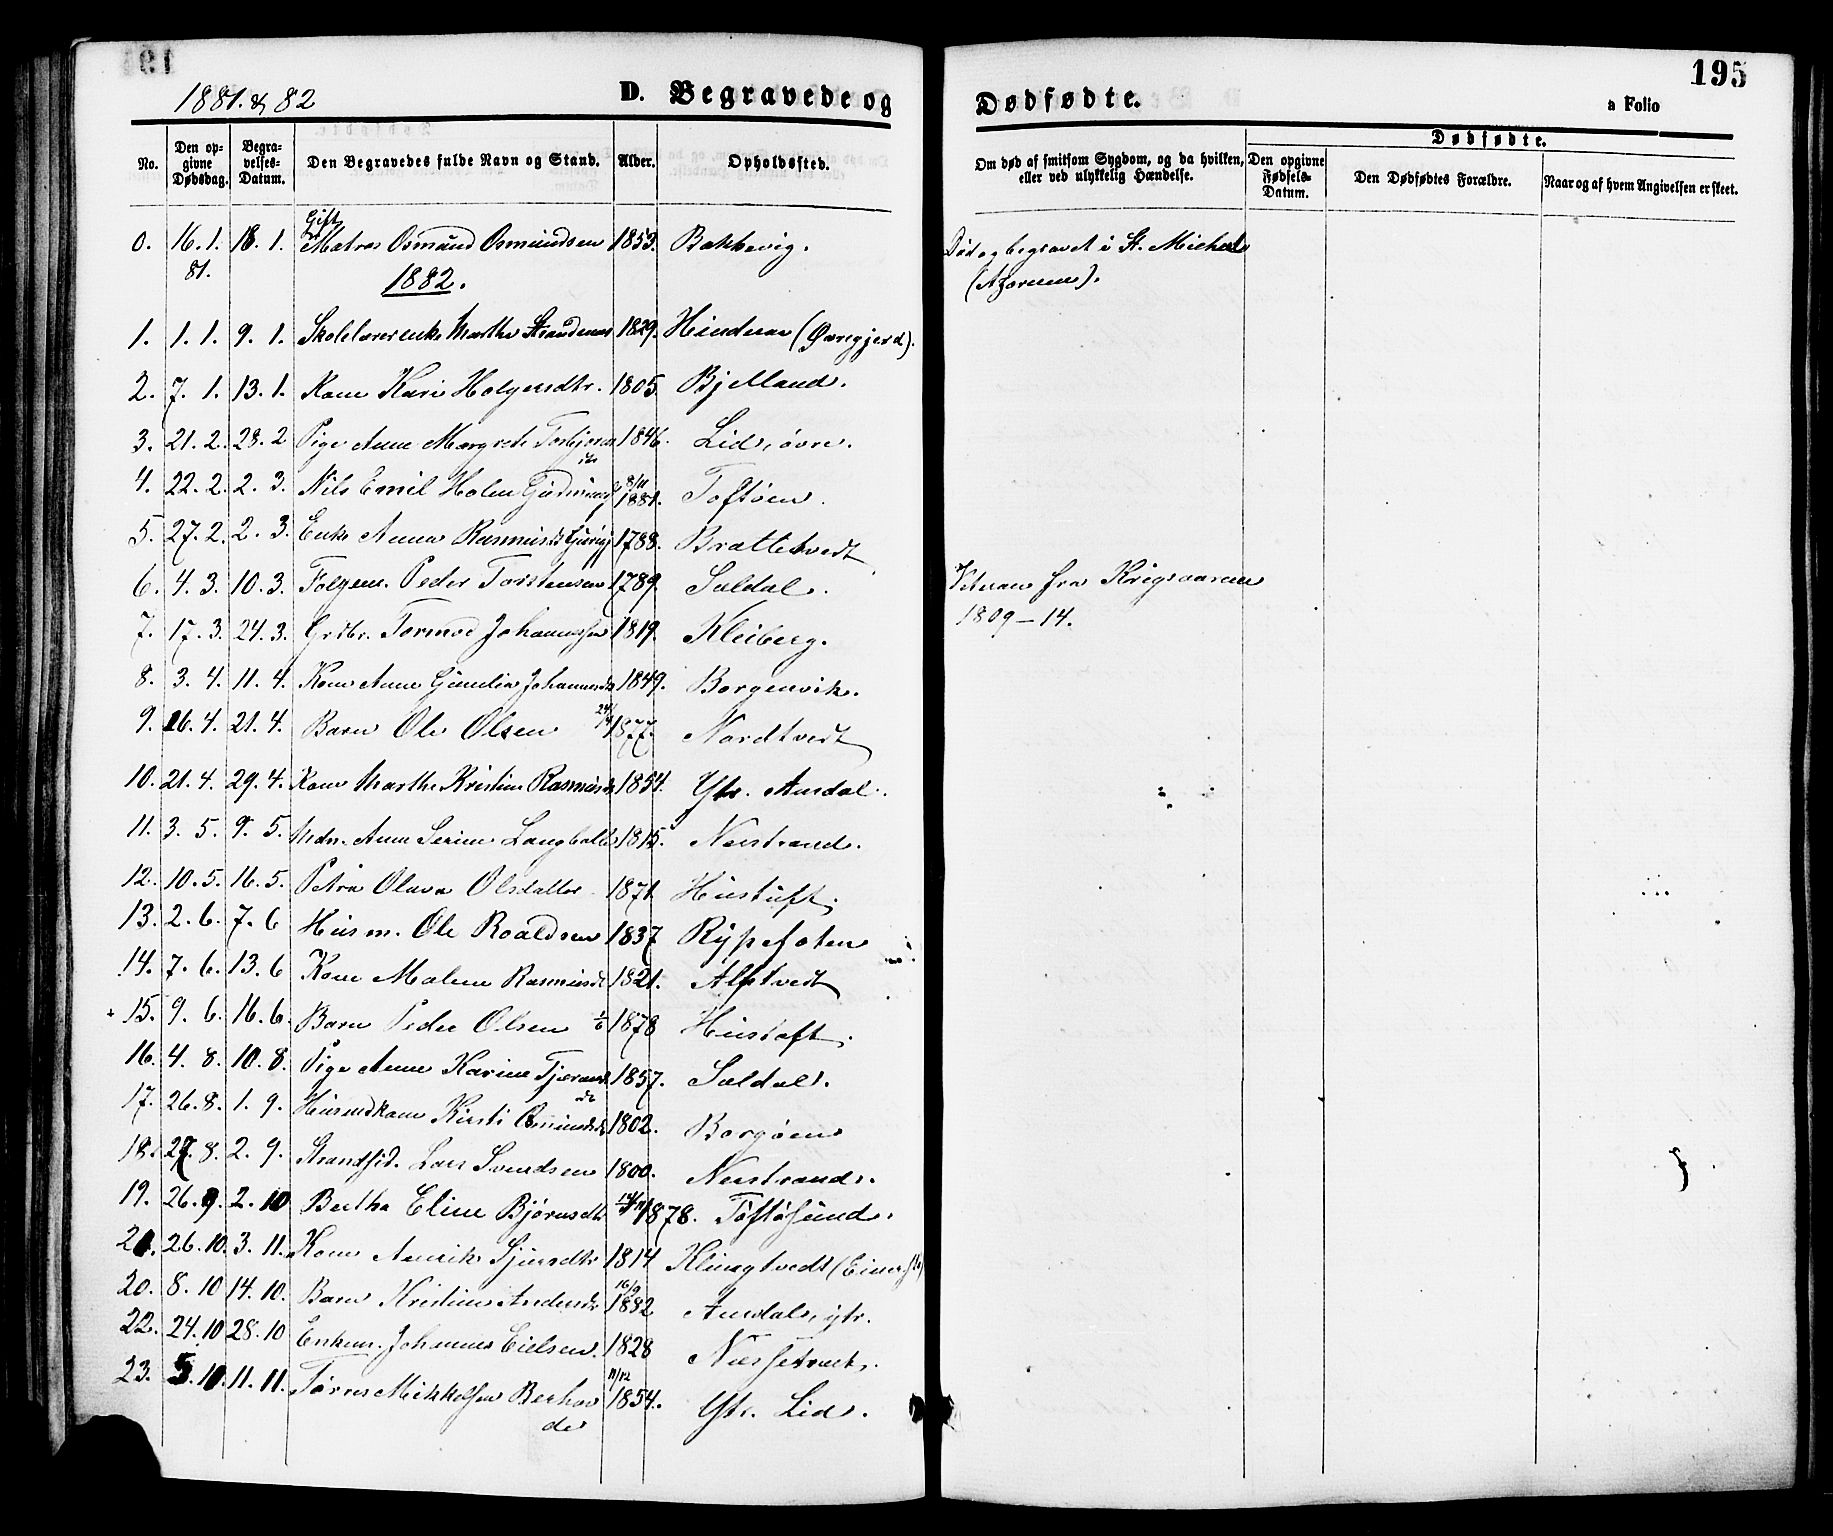 195
1881. & 82
D. Begravede og Dødfødte.
a Folio
No.
Den opgivne Dødsdag.
Begravelses-Datum.
Den Begravedes fulde Navn og Stand.
Alder.
Opholdssted.
Om død af smitsom Sygdom, og da hvilken, eller ved ulykkelig Hændelse.
Dødfødte.
Den opgivne Fødsels-Datum.
Den Dødfødtes Forældre.
Naar og af hvem Angivelsen er skeet.
0. 16. 1. 81. 18. 1. Gift Matros Osmund Osmundsen 1853. Bakkevig. Død og begravet i St. Michels
(Azorerne).
1882.
1. 1. 1. 9. 1. Skolelærerenke Marthe 1829. Hinderaa (Øvregjerd).
2. 7. 1. 13. 1. Kone Kari Holgersdtr. 1805. Bjelland.
3. 21. 2. 28. 2 Pige Anne Margrete 1846. Lid, øvre.
4. 22. 2. 2. 3. Nils Emil Holm 8/11 1881. Toftøen.
5. 27. 2. 2. 3. Enke Anna Rasmusdt 1788. Brattetvedt
6. 4. 3. 10. 3. Folgem. Peder Torstensen 1789. Saldal. Veteran fra Krigsaarene
1809-14.
7. 17. 3. 24. 3. Grdbr. Tormod Johannessen 1819. Kleiberg.
8. 3. 4. 11. 4. Kone Anne Gunelia Johannesdt 1849. Borgenvik.
9. 16. 4. 21. 4. Barn Ole Olsen 1877. Nordtvedt
10. 21. 4. 29. 4. Kone Marthe Kristine Rasmusdt 1854. Ytr. Amdal.
11. 3. 5. 9. 5. Mdm. Anne Serine 1815. Nerstrand.
12. 10. 5. 16. 5. Petra Olava Olsdatter 1871 Hustuft.
13. 2. 6. 7. 6 Husm. Ole Roaldsen 1837 Rypefoten
14. 7. 6. 13. 6 Kone Malene Rasmusdt 1821. Alstvedt
15. 9. 6. 16. 6. Barn Peder Olsen 1/6 1878 Hustoft.
16. 4. 8. 10. 8. Pige Anne Karine 1857. Saldal.
17. 26. 8. 1. 9. Husmdkone Kirsti Osmundsdt 1802. Borgøen
18. 27. 8. 2. 9. Strandsid. Lars Svendsen 1800. Nerstrand.
19. 26. 9. 2. 10 Bertha Eline Bjørnsdtr 1878. Toftøsund.
21. 26. 10. 3. 11. Kone Sjursdtr 1814
20. 8. 10 14. 10. Barn Kristine Andersdt 16/9 1882 Amdal, ytr.
22. 24. 10 28. 10 Enkem. Johannes Eielsen. 1828
23. 5. 10. 11. 11. Tørres Mikkelsen 11/12 1854. Ytr. Lid.